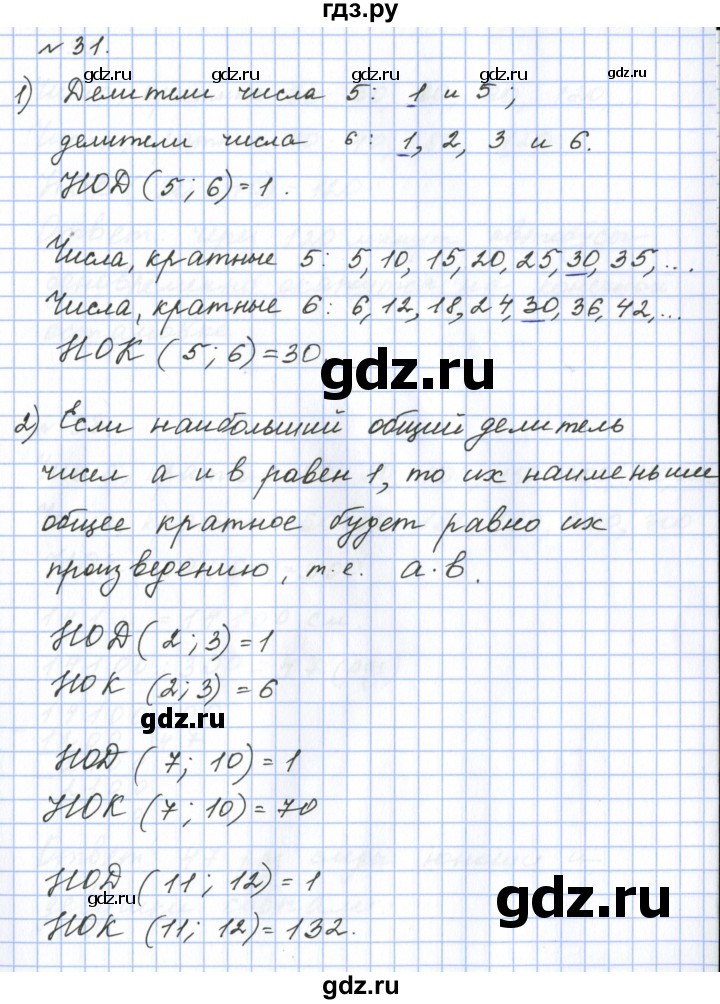 гдз.ру
№ 31.
gdz.ru gdz.ru gdz.ru
1) Делители числа 5: 1 и 5;
делители числа 6: 1, 2, 3 и 6.
gdz.ru
НОД (5; 6) = 1.
gdz.ru gdz.ru
Числа, кратные 5: 5, 10, 15, 20, 25, 30, 35, ...
Числа, кратные 6: 6, 12, 18, 24, 30, 36, 42, ...
НОК (5; 6) = 30.
gdz.ru
2) Если наибольший общий делитель
чисел a и в равен 1, то их наименьшее
общее кратное будет равно их
произведению, т.е. a·в.
gdz.ru
НОД (2; 3) = 1
НОК (2; 3) = 6
gdz.ru
gdz.ru
НОД (7; 10) = 1
НОК (7; 10) = 70
НОД (11; 12) = 1
gdz.ru gdz.ru
НОК (11; 12) = 132.
gdz.ru